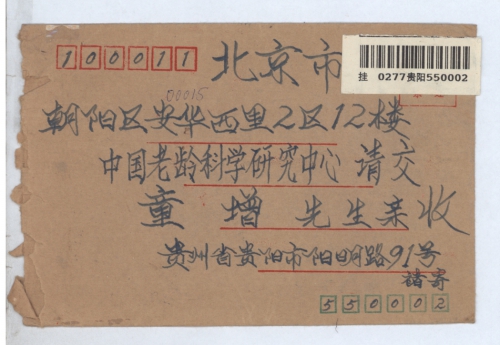 100011
北京市
挂 0277贵阳550002
00015
朝阳区安华西里2区12楼
中国老龄科学研究中心 请交
童 增 先生亲收
贵州省贵阳市阳明路91号
550002